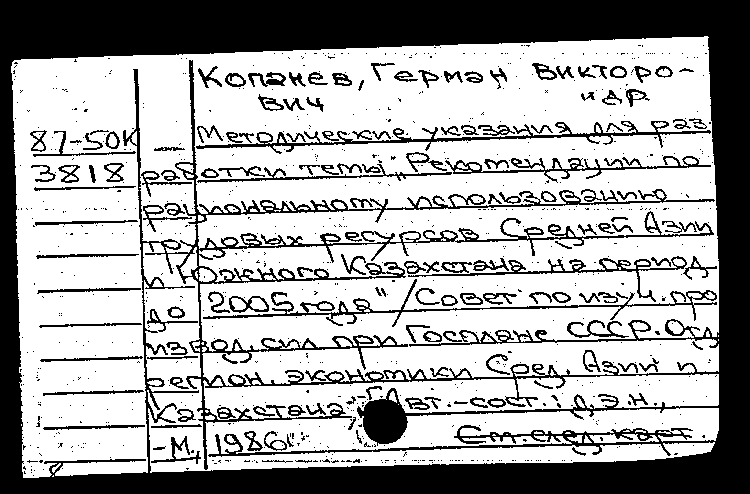 Копанев, Герман Викторо-
вич и др.
87-50К Методические указания для раз
3818 работки темы „Рекомендации по
рациональному использованию
трудовых ресурсов Средней Азии
и Южного Казахстана на период
до 2005 года" / Совет по изуч. про
извод. сил при Госплане СССР. Отд
регион. экономики Сред. Азии и
Казахстана; [Авт.-сост.: д.э.н.,
-М., 1986. См. след. карт.